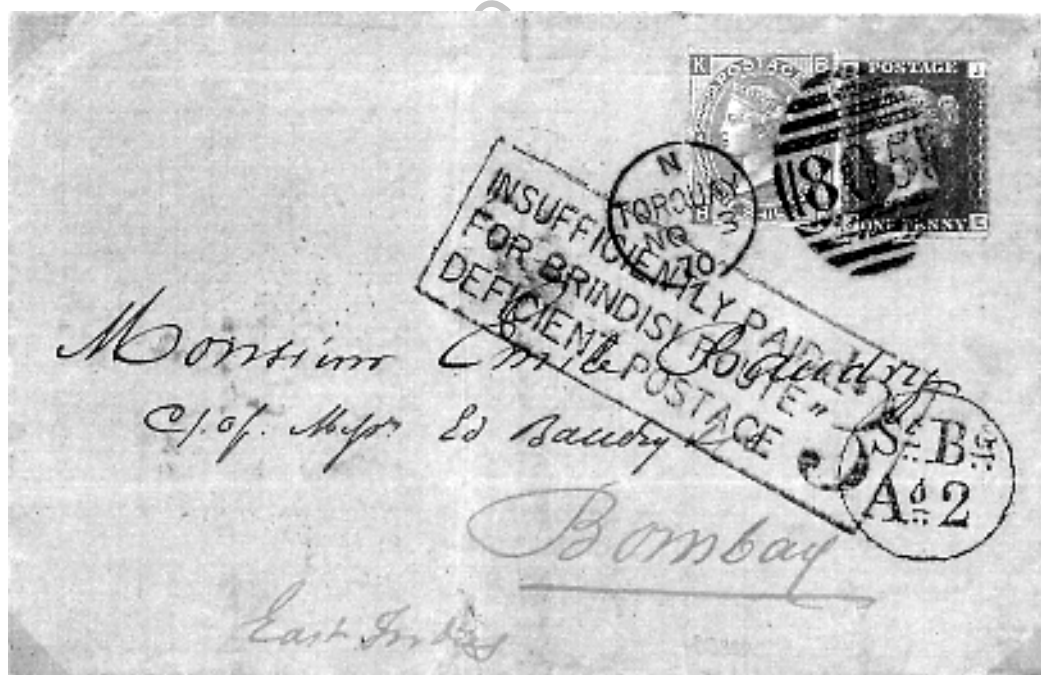 K B
POSTAGE
POSTAGE
J
ONE PENNY
805
N
TORQUAY
NO 3
70
INSUFFICIENTLY PAID
FOR BRINDISI ROUTE"
DEFICIENT POSTAGE
Monsieur Emile Baudry
C/. of. Messrs Ed Baudry
St. Bg.
Ad. 2
Bombay
East Indies